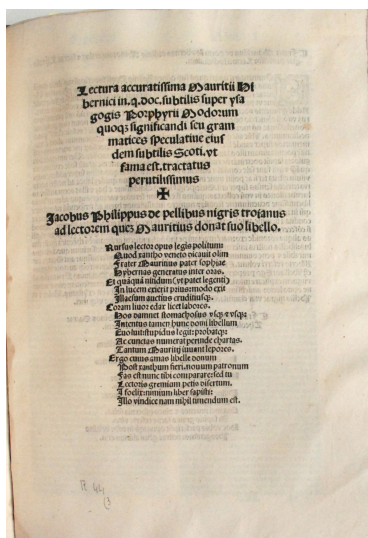 Lectura accuratissima Mauritii Hi
bernici in. q. doc. subtilis super ysa
gogis Porphyrii Modorum
quoqz significandi seu gram
matices speculatiue eius
dem subtilis Scoti. vt
fama est. tractatus
perutilissimus
✠
Jacobus Philippus de pellibus nigris troianus
ad lectorem quez Mauritius donat suo libello.
Rursus lector opus legis politum
Quod xantho veneto dicauit olim
Frater Mauritius pater sophiae
Hybernas generatus inter oras.
Et quanquam nitidum (vt patet legenti)
In lucem exierit prius: modo exit
Illaesum auctius eruditiusqz.
Coram liuor edax licet labores.
Hos damnet stomachosus vsqz et vsqz:
Intentus tamen hunc domi libellum
Euoluit stupidus legit: probatqz:
Ac cunctas numerat perinde chartas.
Tantum Mauritij iuuant lepores.
Ergo cuius amas libelle donum
Post xanthum fieri. nouum patronum
Fas est nunc tibi comparare: sed tu
Lectoris gremium petis disertum.
I foelix: nimium liber sapisti:
Illo vindice nam nihil timendum est.